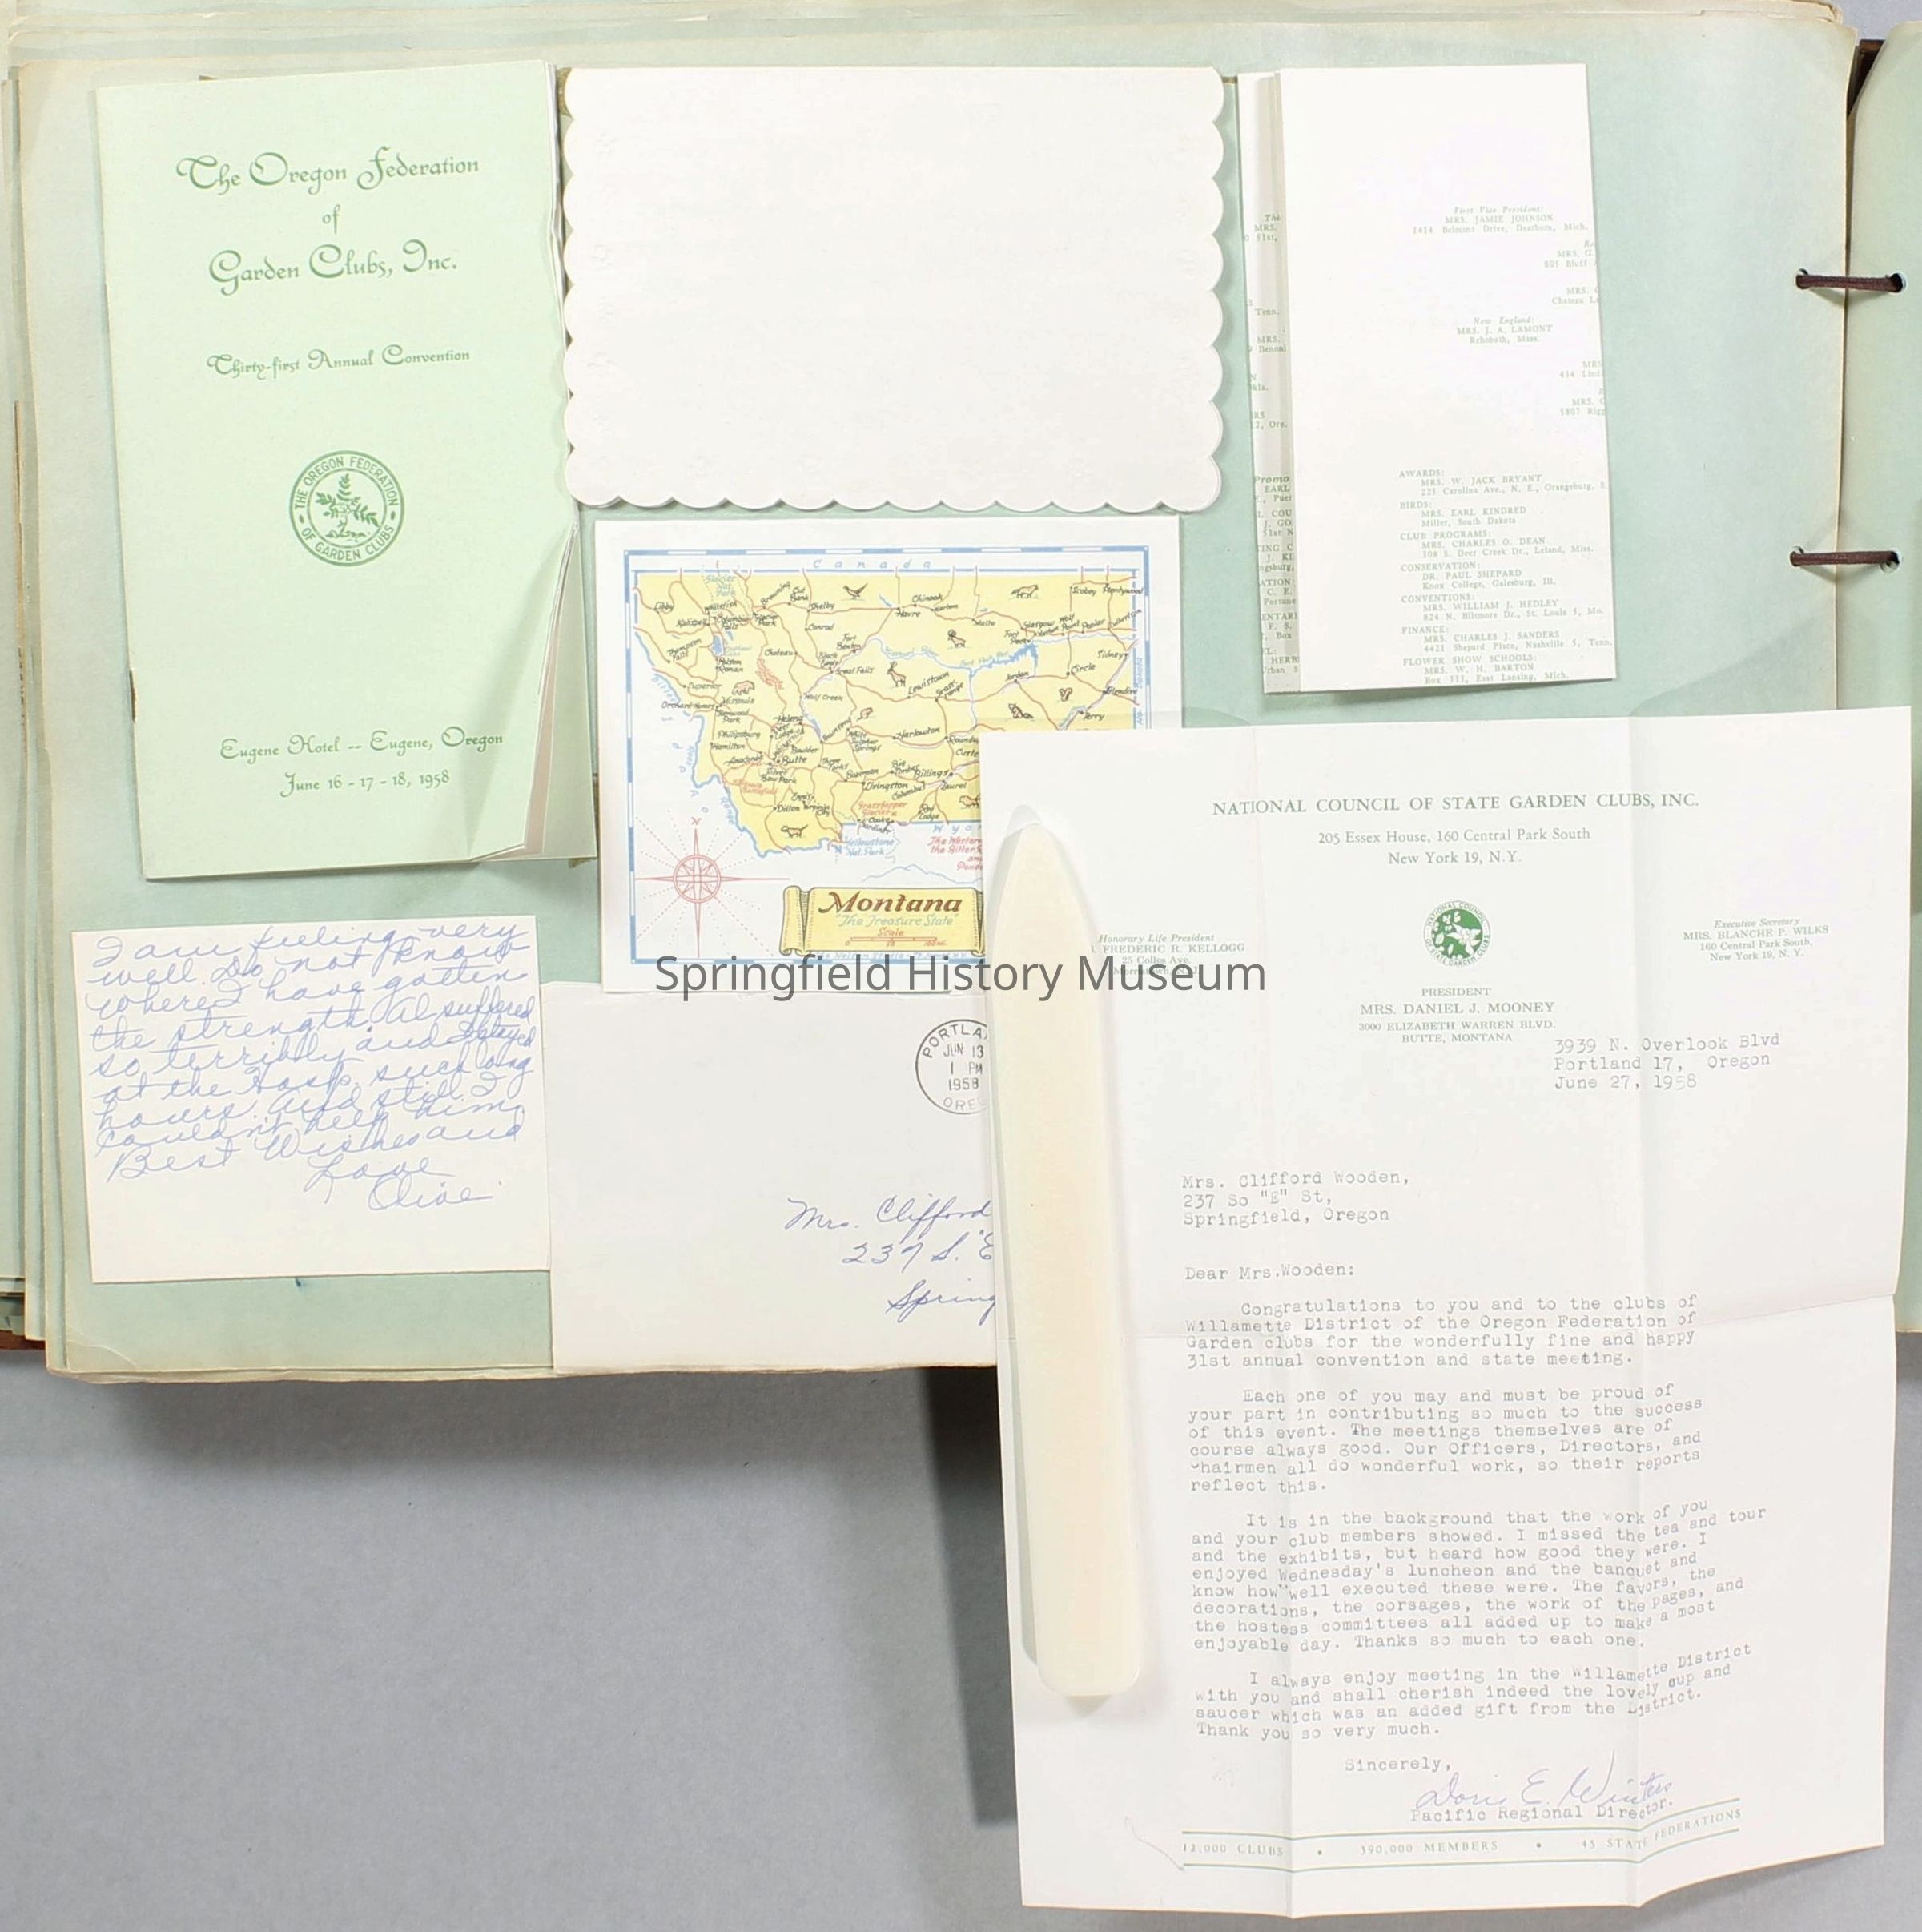 The Oregon Federation
of
Garden Clubs, Inc.
Thirty-first Annual Convention
THE OREGON FEDERATION
OF GARDEN CLUBS
Eugene Hotel -- Eugene, Oregon
June 16 - 17 - 18, 1958
First Vice President:
MRS. JAMIE JOHNSON
1414 Belmont Drive, Dearborn, Mich.
MRS. G.
801 Bluff
MRS.
Chateau
New England:
MRS. J. A. LAMONT
Rehoboth, Mass.
MRS.
MRS.
5807 Rigg
AWARDS:
MRS. W. JACK BRYANT
225 Carolina Ave., N. E., Orangeburg, S.
BIRDS:
MRS. EARL KINDRED
Miller, South Dakota
CLUB PROGRAMS:
MRS. CHARLES O. DEAN
308 S. Deer Creek Dr., Leland, Miss.
CONSERVATION:
DR. PAUL SHEPARD
Knox College, Galesburg, Ill.
CONVENTIONS:
MRS. WILLIAM J. HEDLEY
824 N. Biltmore Dr., St. Louis 5, Mo.
FINANCE:
MRS. CHARLES J. SANDERS
4421 Shepard Place, Nashville 5, Tenn.
FLOWER SHOW SCHOOLS:
MRS. W. H. BARTON
Box 333, East Lansing, Mich.
Canada
Glacier Nat. Park
Libby
Whitefish
Kalispell
Columbia Falls
Browning
Cut Bank
Shelby
Conrad
Chinook
Havre
Harlem
Malta
Glasgow
Wolf Point
Poplar
Scobey
Plentywood
Culbertson
Fort Peck
Sidney
Circle
Glendive
Terry
Jordan
Thompson Falls
Polson
Ronan
Choteau
Fort Benton
Great Falls
Lewistown
Superior
Missoula
Wolf Creek
Helena
Philipsburg
Hamilton
Boulder
Butte
Harlowton
Bozeman
Big Timber
Billings
Livingston
Columbus
Laurel
Dillon
Ennis
Virginia City
Red Lodge
Grasshopper Glacier
Cooke
Gardiner
Yellowstone Nat. Park
Montana
"The Treasure State"
Scale
I am feeling very
well. Do not know
where I have gotten
the strength. Al suffered
so terribly and I stayed
at the Hosp. such long
hours. And still I
couldn't help him.
Best Wishes and
Love
Olive
PORTLA
JUN 13
1 PM
1958
ORE
Mrs. Clifford
237 S. "E
Spring
Springfield History Museum
NATIONAL COUNCIL OF STATE GARDEN CLUBS, INC.
205 Essex House, 160 Central Park South
New York 19, N.Y.
Honorary Life President
FREDERIC R. KELLOGG
25 Colles Ave.
NATIONAL COUNCIL
OF STATE GARDEN CLUBS
Executive Secretary
MRS. BLANCHE P. WILKS
160 Central Park South,
New York 19, N. Y.
PRESIDENT
MRS. DANIEL J. MOONEY
3000 ELIZABETH WARREN BLVD.
BUTTE, MONTANA
3939 N. Overlook Blvd
Portland 17, Oregon
June 27, 1958
Mrs. Clifford Wooden,
237 So "E" St,
Springfield, Oregon
Dear Mrs.Wooden:
Congratulations to you and to the clubs of
Willamette District of the Oregon Federation of
Garden clubs for the wonderfully fine and happy
31st annual convention and state meeting.
Each one of you may and must be proud of
your part in contributing so much to the success
of this event. The meetings themselves are of
course always good. Our Officers, Directors, and
Chairmen all do wonderful work, so their reports
reflect this.
It is in the background that the work of you
and your club members showed. I missed the tea and tour
and the exhibits, but heard how good they were. I
enjoyed Wednesday's luncheon and the banquet and
know how well executed these were. The favors, the
decorations, the corsages, the work of the pages, and
the hostess committees all added up to make a most
enjoyable day. Thanks so much to each one.
I always enjoy meeting in the Willamette District
with you and shall cherish indeed the lovely cup and
saucer which was an added gift from the District.
Thank you so very much.
Sincerely,
Doris E. Winters
Pacific Regional Director.
12,000 CLUBS • 390,000 MEMBERS • 45 STATE FEDERATIONS